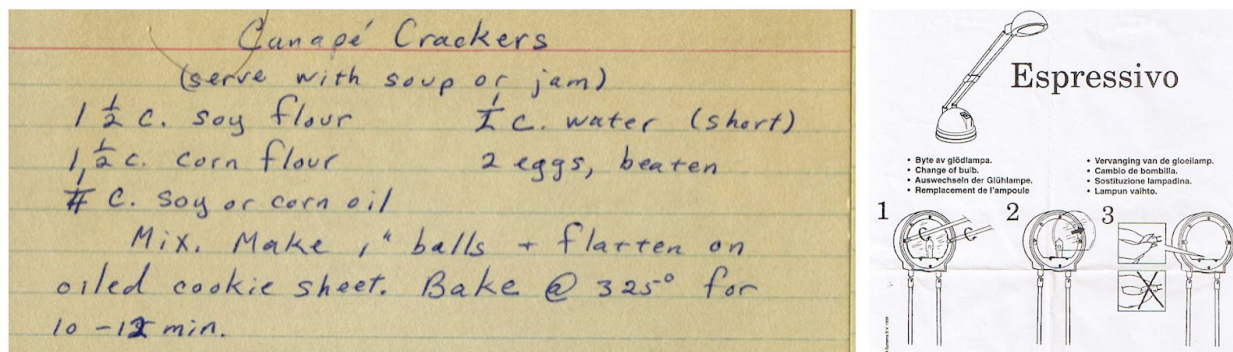 Canapé Crackers
(serve with soup or jam)
1 1/2 c. soy flour
c. water (short)
1 1/2 c. corn flour
2 eggs, beaten
1/4 c. soy or corn oil
Mix. Make 1" balls + flatten on
oiled cookie sheet. Bake @ 325° for
10-12 min.
Espressivo
• Byte av glödlampa.
• Change of bulb.
• Auswechseln der Glühlampe.
• Remplacement de l'ampoule
• Vervanging van de gloeilamp.
• Cambio de bombilla.
• Sostituzione lampadina.
• Lampun vaihto.
1 2 3